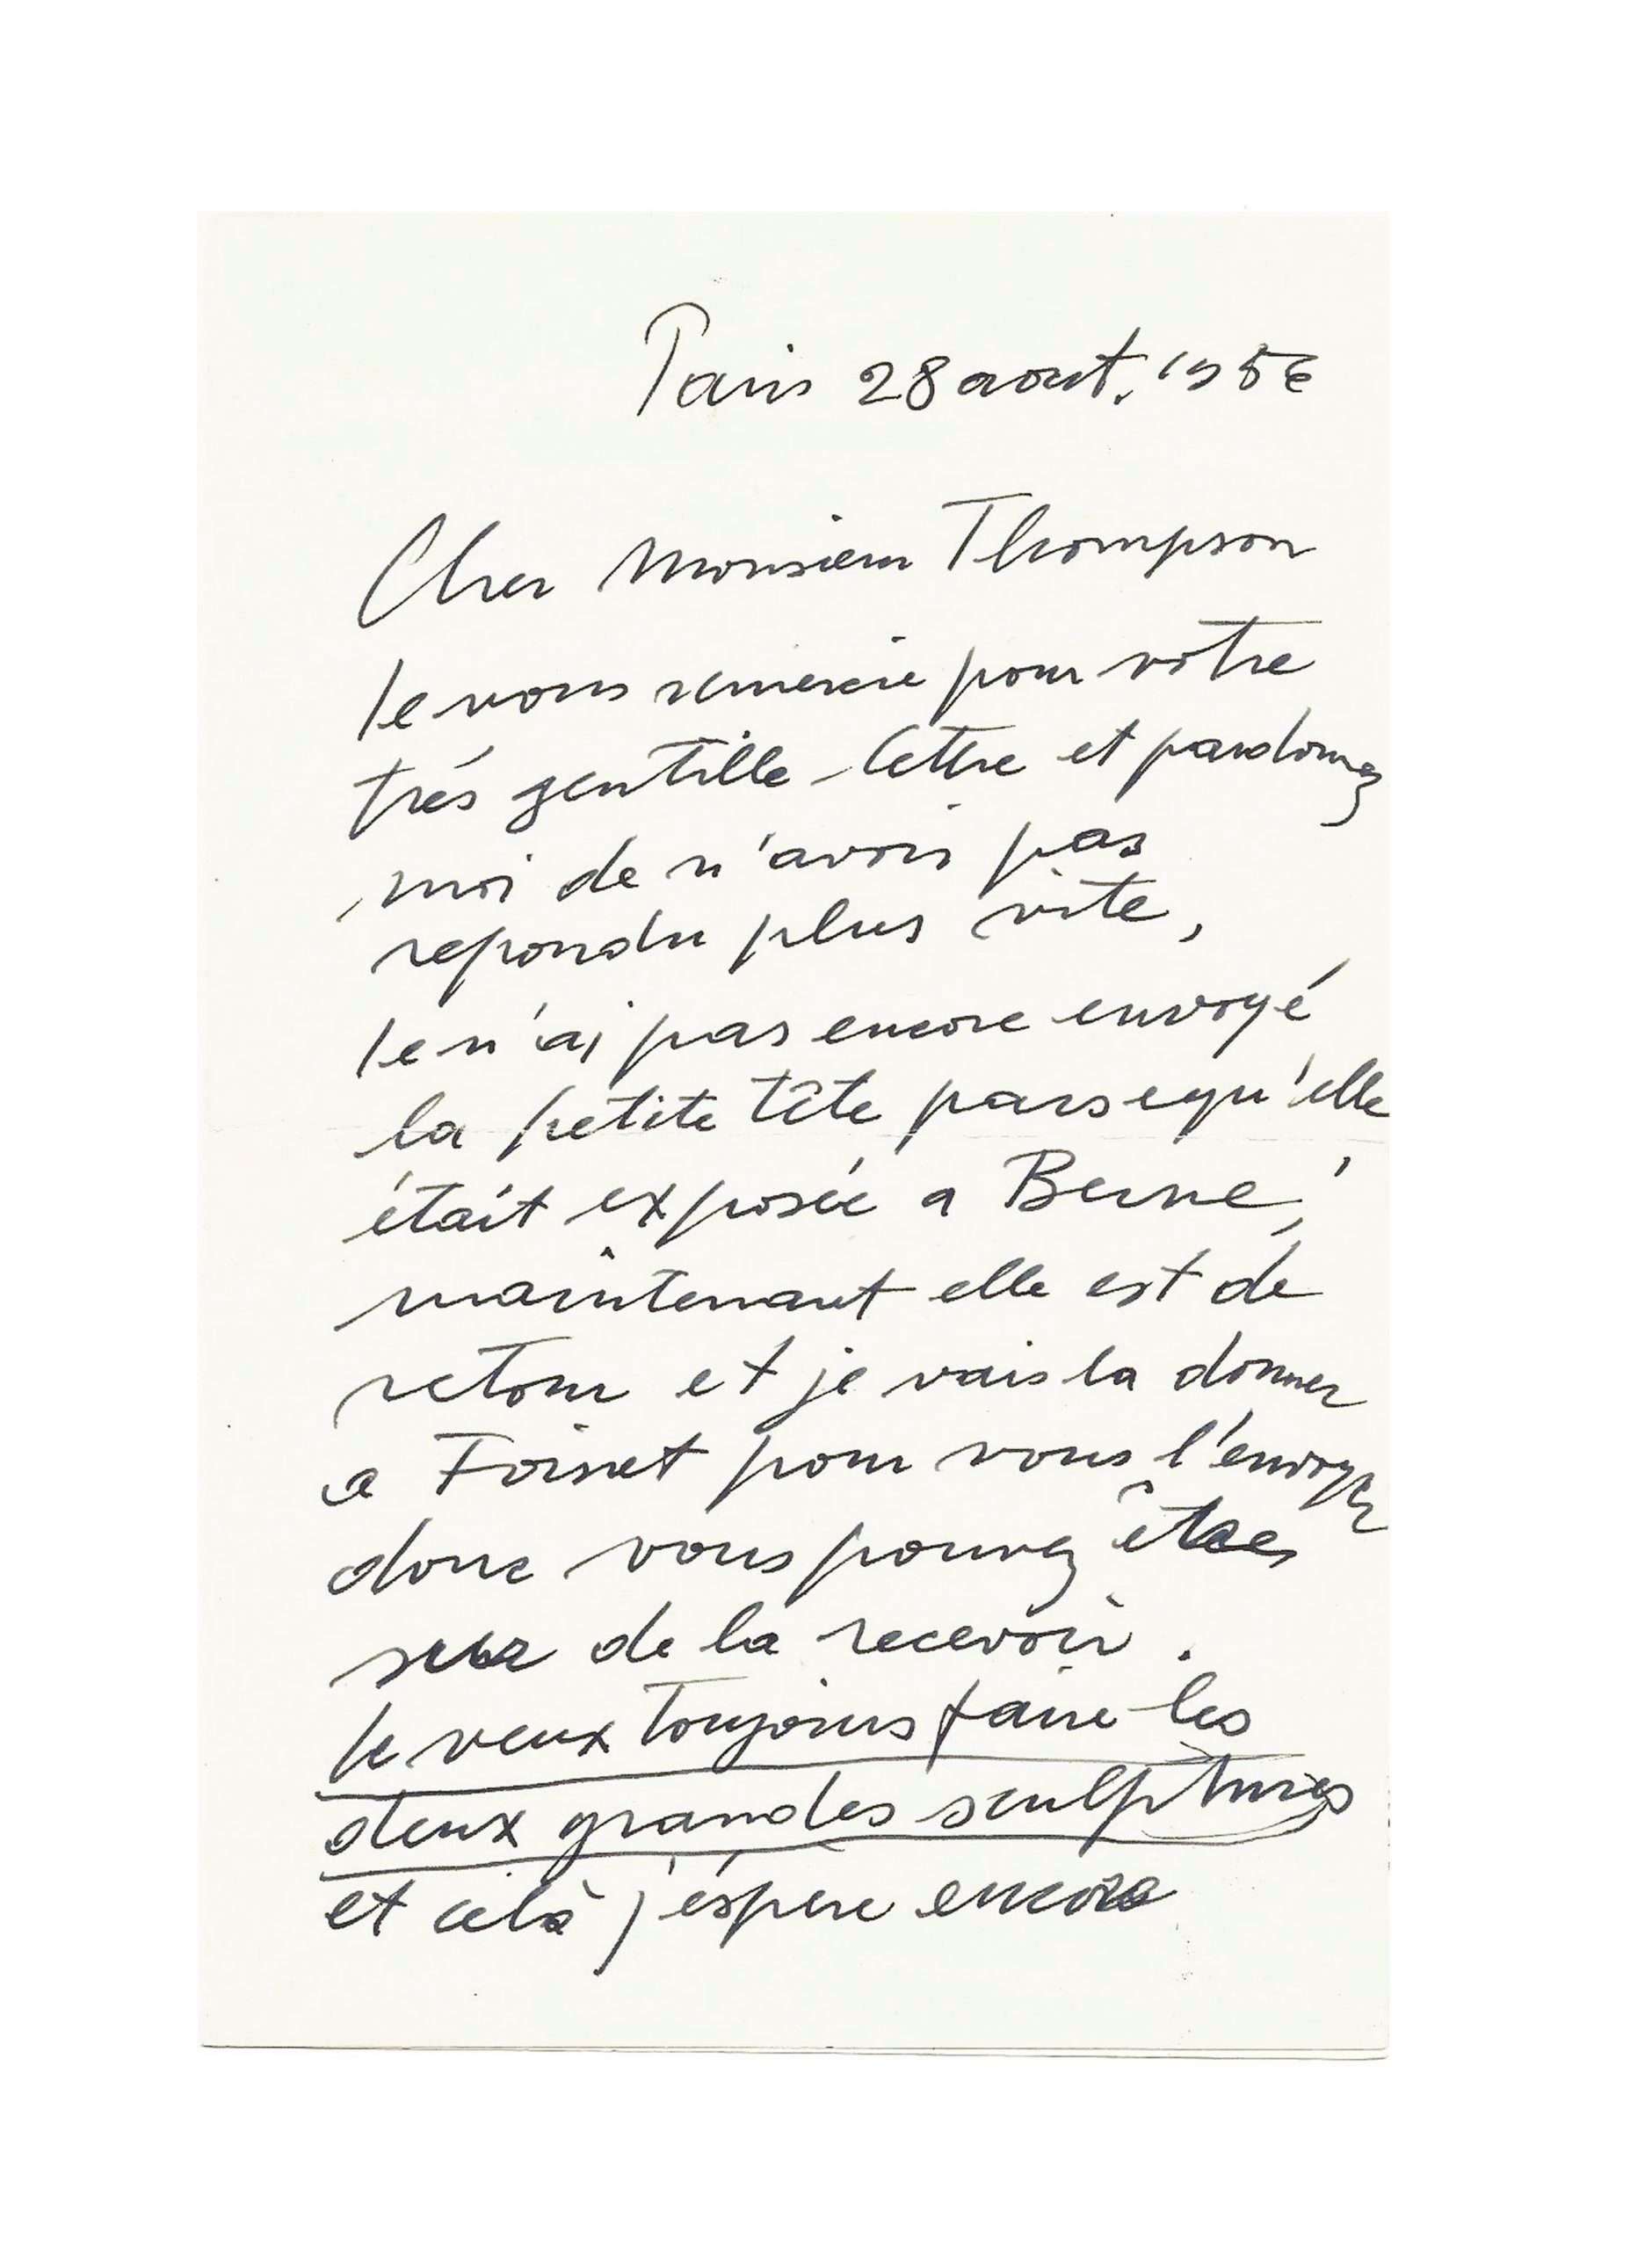 Paris 28 aout. 1956
Cher Monsieur Thompson
Je vous remercie pour vôtre
trés gentille lettre et pardonnez
moi de n'avoir pas
repondu plus vite,
Je n'ai pas encore envoyé
la petite tête parsequ'elle
était exposée a Berne,
maintenant elle est de
retour et je vais la donner
a Foinet pour vous l'envoyer
donc vous pouvez êtres
sur de la recevoir.
Je veux toujours faire les
deux grandes sculptures
et celà j'éspére encore